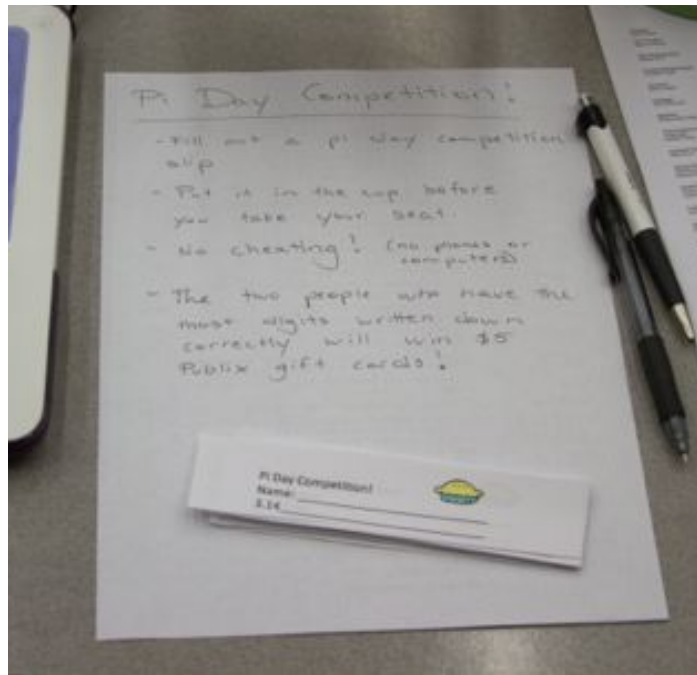 Pi Day Competition!
- Fill out a pi day competition
slip
- Put it in the cup before
you take your seat.
- No cheating! (no phones or
computers)
- The two people who have the
most digits written down
correctly will win $5
Publix gift cards!
Pi Day Competition!
Name:
3.14